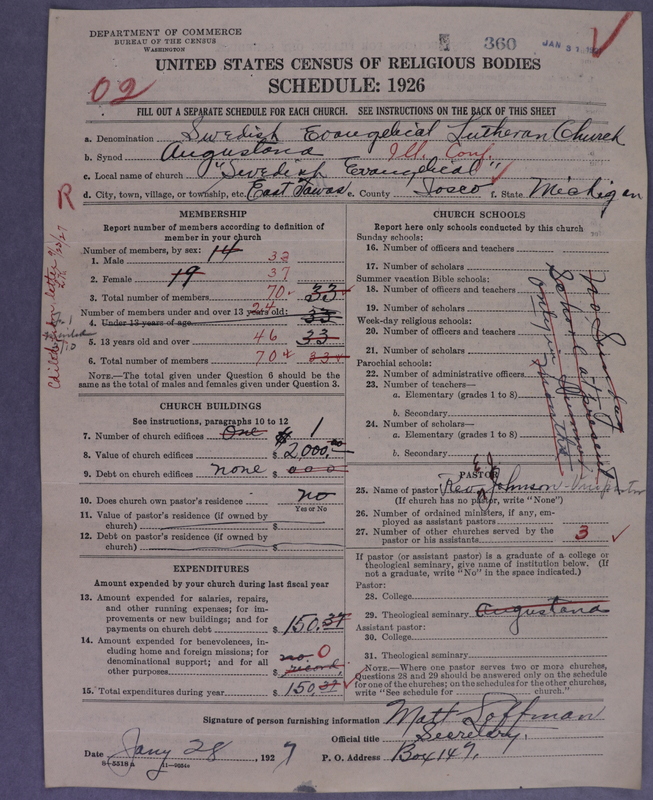 DEPARTMENT OF COMMERCE
BUREAU OF THE CENSUS
WASHINGTON
360
JAN 31
UNITED STATES CENSUS OF RELIGIOUS BODIES
SCHEDULE: 1926
02
FILL OUT A SEPARATE SCHEDULE FOR EACH CHURCH. SEE INSTRUCTIONS ON THE BACK OF THIS SHEET
a. Denomination Swedish Evangelical Lutheran Church
b. Synod Augustana Ill. Conf.
c. Local name of church "Swedish Evangelical"
d. City, town, village, or township, etc. East Tawas e. County Iosco f. State Michigan
R
MEMBERSHIP
Report number of members according to definition of
member in your church
Number of members, by sex: 14
1. Male 33
2. Female 19 37
3. Total number of members 70 33
Number of members under and over 13 years old: 24
4. Under 13 years of age 33
5. 13 years old and over 46 33
6. Total number of members 70 33
NOTE.—The total given under Question 6 should be
the same as the total of males and females given under Question 3.
CHURCH BUILDINGS
See instructions, paragraphs 10 to 12
7. Number of church edifices One 1
8. Value of church edifices $ 2,000.00
9. Debt on church edifices none $ 000
10. Does church own pastor's residence no
Yes or No
11. Value of pastor's residence (if owned by
church) $
12. Debt on pastor's residence (if owned by
church) $
EXPENDITURES
Amount expended by your church during last fiscal year
13. Amount expended for salaries, repairs,
and other running expenses; for im-
provements or new buildings; and for
payments on church debt $ 150.37
14. Amount expended for benevolences, in-
cluding home and foreign missions; for
denominational support; and for all
other purposes $ no record. 0
15. Total expenditures during year $ 150.37
CHURCH SCHOOLS
Report here only schools conducted by this church
Sunday schools:
16. Number of officers and teachers
17. Number of scholars
Summer vacation Bible schools:
18. Number of officers and teachers
19. Number of scholars
Week-day religious schools:
20. Number of officers and teachers
21. Number of scholars
Parochial schools:
22. Number of administrative officers
23. Number of teachers—
a. Elementary (grades 1 to 8)
b. Secondary
24. Number of scholars—
a. Elementary (grades 1 to 8)
b. Secondary
No Sunday
School at present
only in Summer
months
PASTOR
25. Name of pastor Rev. E J Johnson
(If church has no pastor, write "None")
26. Number of ordained ministers, if any, em-
ployed as assistant pastors
27. Number of other churches served by the
pastor or his assistants 3
If pastor (or assistant pastor) is a graduate of a college or
theological seminary, give name of institution below. (If
not a graduate, write "No" in the space indicated.)
Pastor:
28. College
29. Theological seminary Augustana
Assistant pastor:
30. College
31. Theological seminary
NOTE.—Where one pastor serves two or more churches,
Questions 28 and 29 should be answered only on the schedule
for one of the churches; on the schedules for the other churches,
write "See schedule for church."
Signature of person furnishing information Matt Loffman
Official title Secretary.
Date Jany 28, 1927 P. O. Address Box 149.
8-5518 a 11-9954